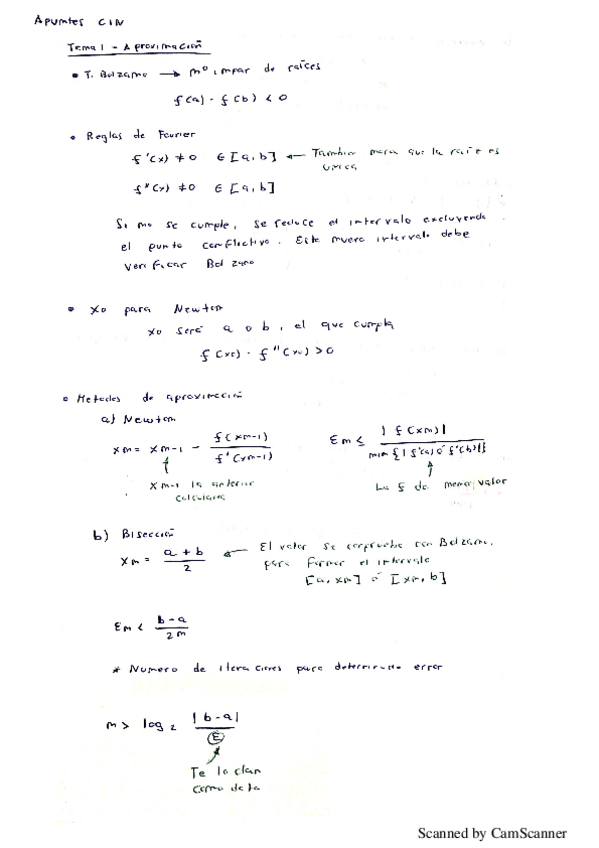 Apuntes CIN
Tema 1 - Aproximación
• T. Bolzano → nº impar de raíces
f(a) · f(b) < 0
• Reglas de Fourier
f'(x) ≠ 0 ∈ [a, b] ← También para que la raíz es
única
f''(x) ≠ 0 ∈ [a, b]
Si no se cumple, se reduce el intervalo excluyendo
el punto conflictivo. Este nuevo intervalo debe
verificar Bolzano
• x0 para Newton
x0 será a o b, el que cumpla
f(x0) · f''(x0) > 0
• Metodos de aproximación
a) Newton
xn = xn-1 - f(xn-1) / f'(xn-1)
En ≤ |f(xn)| / min{|f'(a) ó f'(b)|}
xn-1 la anterior
calculada
La f de menor valor
b) Bisección
xn = a + b / 2 ← El valor se comprueba con Bolzano,
para formar el intervalo
[a, xn] ó [xn, b]
En < b - a / 2n
* Numero de iteraciones para determinado error
n > log2 |b - a| / E
Te lo dan
como dato
Scanned by CamScanner